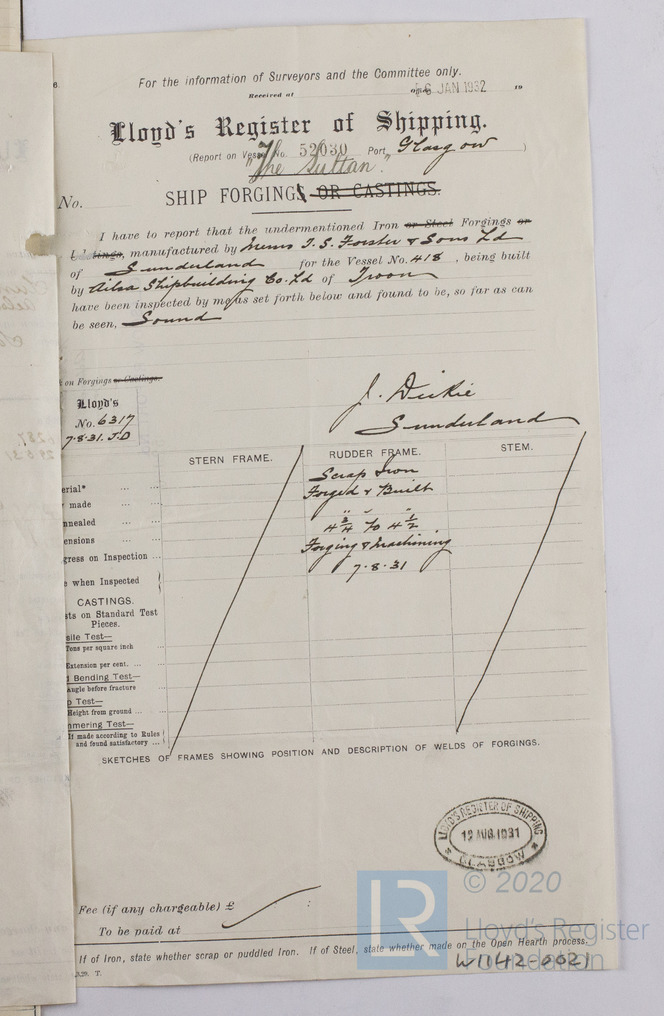 For the information of Surveyors and the Committee only.
Received at 6 JAN 1932 19
Lloyd's Register of Shipping.
(Report on Vessel No. 52030 Port Glasgow )
"The Sultan."
No. SHIP FORGINGS OR CASTINGS.
I have to report that the undermentioned Iron or Steel Forgings or
Castings, manufactured by Messrs T. S. Forster & Sons Ld
of Sunderland for the Vessel No. 418 , being built
by Ailsa Shipbuilding Co. Ld of Troon
have been inspected by me as set forth below and found to be, so far as can
be seen, Sound
on Forgings or Castings.
Lloyd's
No. 6317
7.8.31. J.D
J. Dickie
Sunderland
STERN FRAME. RUDDER FRAME. STEM.
erial* ... ... Scrap Iron
made ... ... Forged & Built
nnealed ... ...
ensions ... ... 4 3/4" to 4 1/2"
gress on Inspection ... Forging & Machining
e when Inspected 7.8.31
CASTINGS.
sts on Standard Test
Pieces.
sile Test—
Tons per square inch ...
Extension per cent. ... ...
d Bending Test—
Angle before fracture
p Test—
Height from ground ... ...
mmering Test—
If made according to Rules
and found satisfactory ...
SKETCHES OF FRAMES SHOWING POSITION AND DESCRIPTION OF WELDS OF FORGINGS.
LLOYD'S REGISTER OF SHIPPING
12 AUG. 1931
* GLASGOW *
Fee (if any chargeable) £ :
To be paid at
If of Iron, state whether scrap or puddled Iron. If of Steel, state whether made on the Open Hearth process.
W1142-0021
LR
© 2020
Lloyd's Register
Foundation